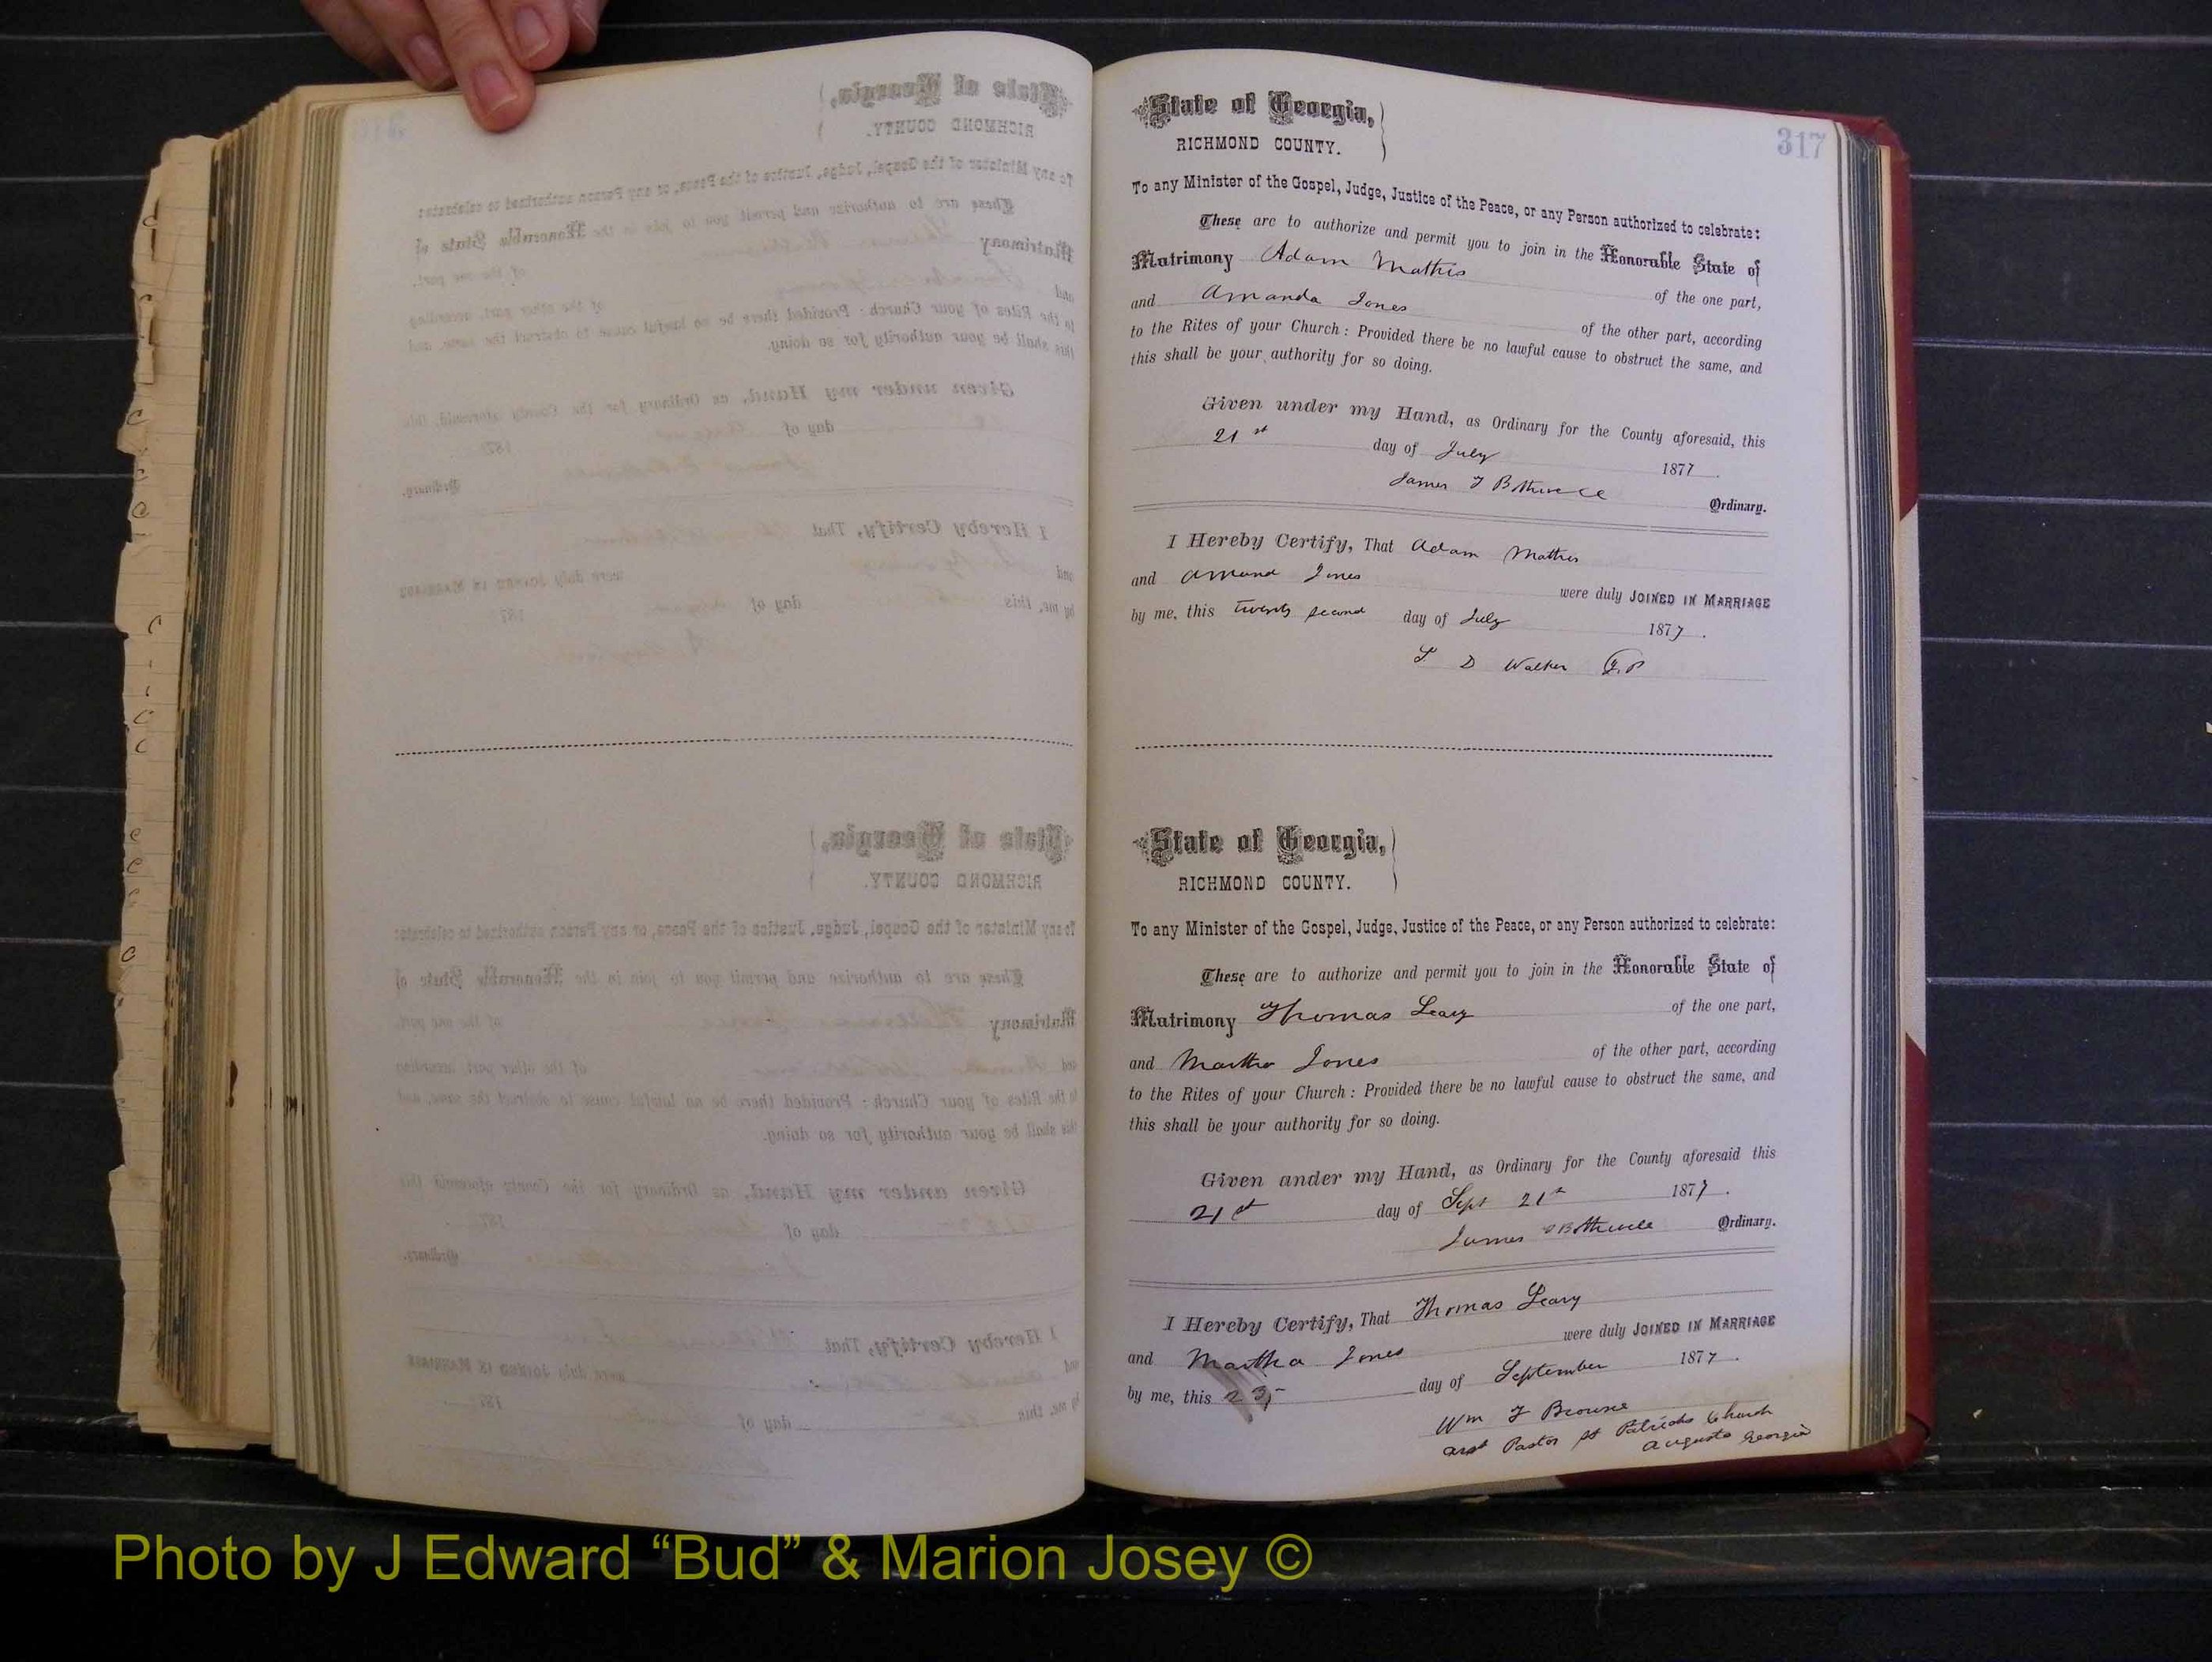 317
State of Georgia,
RICHMOND COUNTY.
To any Minister of the Gospel, Judge, Justice of the Peace, or any Person authorized to celebrate:
These are to authorize and permit you to join in the Honorable State of
Matrimony Adam Mathis of the one part,
and Amanda Jones of the other part, according
to the Rites of your Church: Provided there be no lawful cause to obstruct the same, and
this shall be your authority for so doing.
Given under my Hand, as Ordinary for the County aforesaid, this
21st day of July 1877.
James F Bothwell Ordinary.
I Hereby Certify, That Adam Mathis
and Amand Jones were duly JOINED IN MARRIAGE
by me, this twenty second day of July 1877.
L D Walker J.P
State of Georgia,
RICHMOND COUNTY.
To any Minister of the Gospel, Judge, Justice of the Peace, or any Person authorized to celebrate:
These are to authorize and permit you to join in the Honorable State of
Matrimony Thomas Leary of the one part,
and Martha Jones of the other part, according
to the Rites of your Church: Provided there be no lawful cause to obstruct the same, and
this shall be your authority for so doing.
Given under my Hand, as Ordinary for the County aforesaid this
21st day of Sept 21st 1877.
James F Bothwell Ordinary.
I Hereby Certify, That Thomas Leary
and Martha Jones were duly JOINED IN MARRIAGE
by me, this 23, day of September 1877.
Wm F Browne
asst Pastor St Patricks Church
Augusta Georgia
Photo by J Edward “Bud” & Marion Josey ©